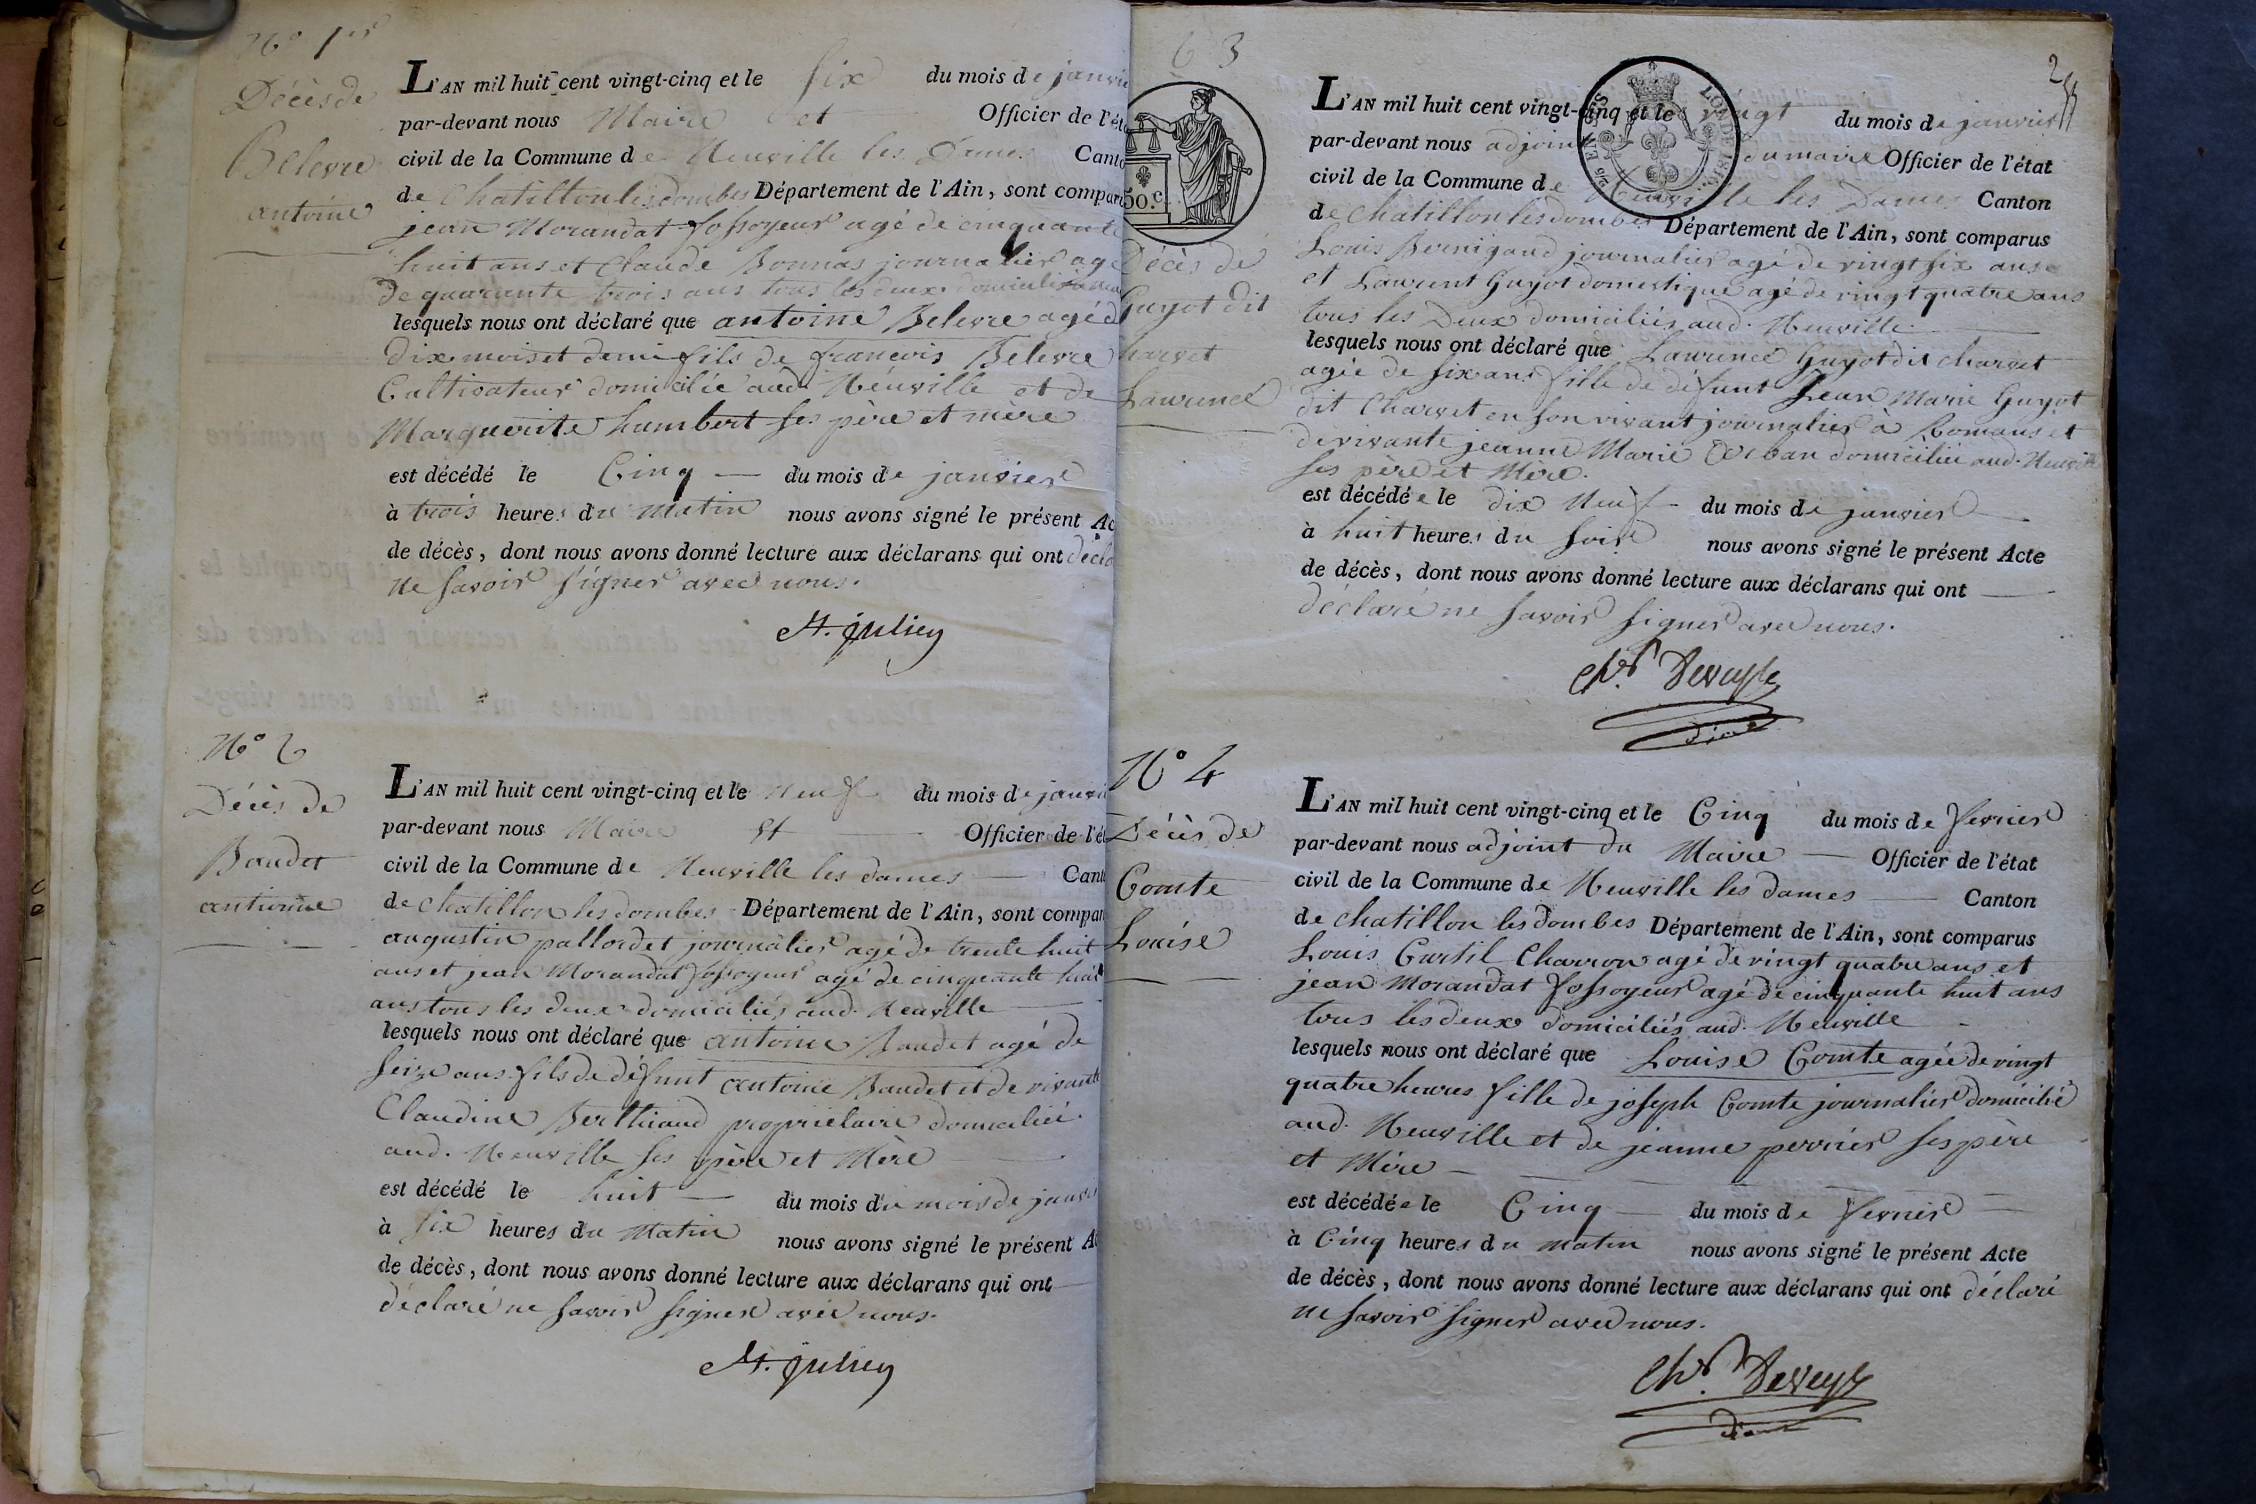 N° 1er
Décès de
Belevre
antoine
L'AN mil huit cent vingt-cinq et le six du mois de janvie
par-devant nous Maire et Officier de l'éta
civil de la Commune de Neuville les Dames Canto
de Chatillon les dombes Département de l'Ain, sont comparu
jean Morandat fossoyeur agé de cinquante
huit ans et Claude Bonnas journalier agé
de quarante trois ans tous les deux domiciliés
lesquels nous ont déclaré que antoine Belevre agé d
dix mois et demi fils de francois Belevre
Cultivateur domicilié aud. Neuville et de
Marguerite humbert ses père et mère
est décédé le Cinq du mois de janvier
à trois heures du Matin nous avons signé le présent Ac
de décès, dont nous avons donné lecture aux déclarans qui ont décla
ne savoir signer avec nous.
St. julien
N° 2
Décès de
Baudet
antoine
L'AN mil huit cent vingt-cinq et le neuf du mois de janvi
par-devant nous Maire et Officier de l'ét
civil de la Commune de Neuville les dames Cant
de chatillon les dombes Département de l'Ain, sont compar
augustin pallordet journalier agé de trente huit
ans et jean Morandat fossoyeur agé de cinquante huit
ans tous les deux domiciliés aud. Neuville
lesquels nous ont déclaré que antoine Baudet agé de
seize ans fils de défunt antoine Baudet et de vivante
Claudine Berthiaud propriétaire domiciliée
aud. Neuville ses père et Mère
est décédé le huit du mois du mois de janvier
à six heures du Matin nous avons signé le présent Ac
de décès, dont nous avons donné lecture aux déclarans qui ont
déclaré ne savoir signer avec nous.
St. julien
3
2
50.c
LOI DE 1816.
Décès de
Guyot dit
harvet
Laurence
L'AN mil huit cent vingt-cinq et le vingt du mois de janvier
par-devant nous adjoint du maire Officier de l'état
civil de la Commune de Neuville les Dames Canton
de chatillon les dombes Département de l'Ain, sont comparus
Louis Bernigaud journalier agé de vingt six ans
et Laurent Guyot domestique agé de vingt quatre ans
tous les Deux domiciliés aud. Neuville
lesquels nous ont déclaré que Laurence Guyot dit charvet
agée de six ans fille de défunt Jean Marie Guyot
dit Charvet en son vivant journalier à Romans et
de vivante jeanne Marie domiciliée aud. Neuville
ses père et Mère.
est décédée le dix Neuf du mois de janvier
à huit heures du soir nous avons signé le présent Acte
de décès, dont nous avons donné lecture aux déclarans qui ont
déclaré ne savoir signer avec nous.
chr Deveyle
N° 4
Décès de
Comte
Louise
L'AN mil huit cent vingt-cinq et le Cinq du mois de fevrier
par-devant nous adjoint du Maire Officier de l'état
civil de la Commune de Neuville les dames Canton
de chatillon les dombes Département de l'Ain, sont comparus
Louis Curtil Charron agé de vingt quatre ans et
jean Morandat fossoyeur agé de cinquante huit ans
tous les deux domiciliés aud. Neuville
lesquels nous ont déclaré que Louise Comte agée de vingt
quatre heures fille de joseph Comte journalier domicilié
aud. Neuville et de jeanne perrier ses père
et Mère
est décédée le Cinq du mois de fevrier
à Cinq heures du matin nous avons signé le présent Acte
de décès, dont nous avons donné lecture aux déclarans qui ont déclaré
ne savoir signer avec nous.
chr. Deveyle